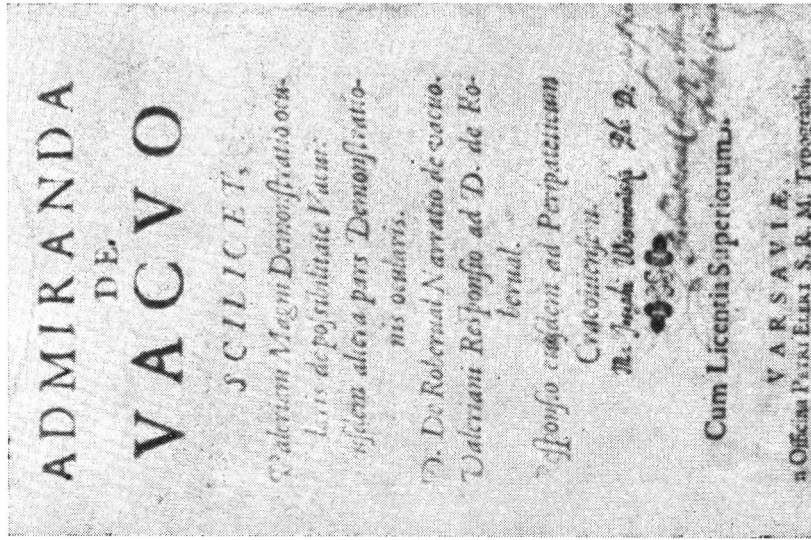 ADMIRANDA
DE
VACVO
SCILICET,
Valeriani Magni Demonſtratio ocu-
laris de poſsibilitate Vacui:
eiuſdem altera pars Demonſtratio-
nis ocularis.
D. De Roberual Narratio de vacuo.
Valeriani Reſponſio ad D. de Ro-
berual.
ſponſio eiuſdem ad Peripateticum
Cracouienſem.
Cum Licentia Superiorum.
VARSAVIÆ,
n Officin Petri Elert S. R. M. Typographi.